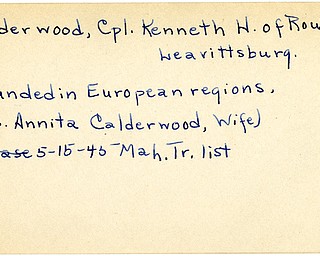 derwood, Cpl. Kenneth W. of Rou
Leavittsburg.
unded in European regions,
. Annita Calderwood, Wife)
ease 5-15-45 - Mah. Tr. list